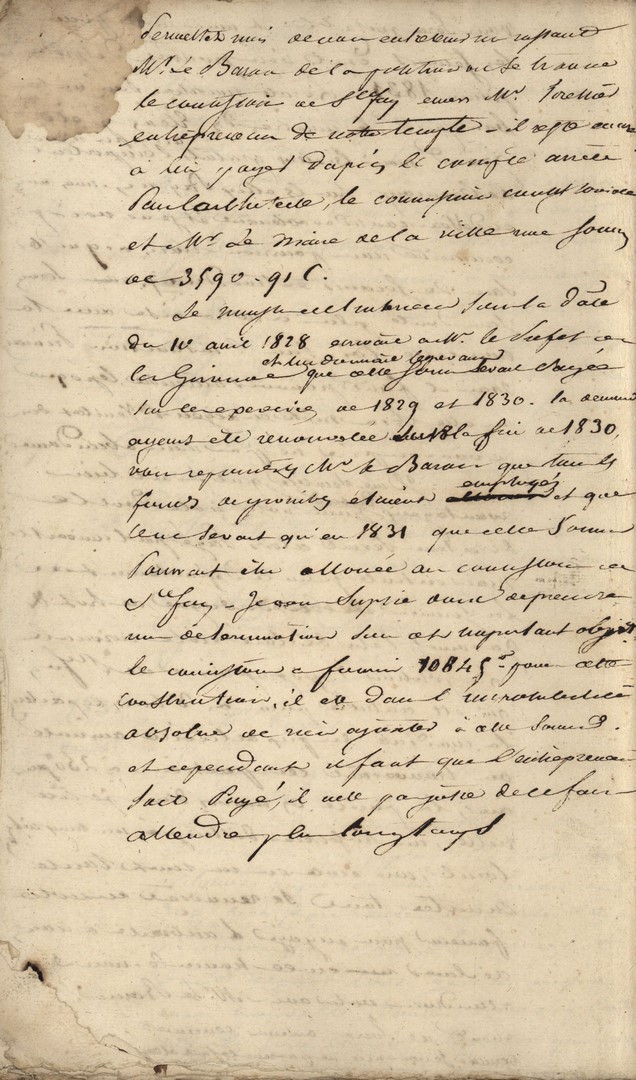 Permettez moi de vous entretenir un instant
Mr. le Baron de la position où se trouve
le consistoire de Ste foy envers Mr.
entrepreneur de notre temple - il reste encore
à lui payer d'après le compte arrêté
Par l'architecte, le consistoire
et Mr. Le Maire de la ville une somme
de 3590 - 91 C.
Le ministre de l'interieur sous la date
du 10 avril 1828 ecrivait à Mr. le Prefet de
la Gironde que cette somme serait
sur les exercices de 1829 et 1830. la demande
ayant été renouvellée la fin de 1830,
vous repondites Mr. le Baron que tous les
fonds disponibles etaient employés et que
ce ne serait qu'en 1831 que cette somme
Pourrait être allouée au consistoire de
Ste foy - Je vous suplie donc de prendre
une determination sur cet important objet
le consistoire a fourni 10845 f. pour cette
construction, il est dans l'impossibilité
absolue de rien ajouter à cette somme.
et cependant il faut que l'entrepreneur
soit Payé, il n'est pas juste de le faire
attendre plus longtemps